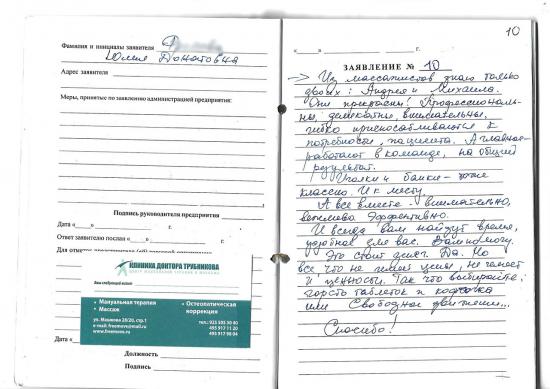 Фамилия и инициалы заявителя
Юлия Донатовна
Адрес заявителя
Меры, принятые по заявлению администрацией предприятия:
Подпись руководителя предприятия
Дата «
Ответ заявителю послан «
Для отметок
КЛИНИКА ДОКТОРА ТРУБНИКОВА
Ваш следующий визит:
• Мануальная терапия
• Массаж
• Остеопатическая
коррекция
ул. Машкова 28/20, стр.1
e-mail: freemove@mail.ru
www.freemove.ru
тел.: 925 585 30 80
495 917 11 20
495 917 98 04
Дата «
Должность
Подпись
10
« » г.
ЗАЯВЛЕНИЕ № 10
Из массажистов знаю только
двоих: Андрея и Михаила.
Они прекрасны! Профессиональ-
ны, деликатны, внимательны,
гибко приспосабливаются к
потребности пациента. А главное -
работают в команде, на общий
результат.
Иголки и банки - тоже
классно. И к месту.
А все вместе - внимательно,
вежливо эффективно.
И всегда вам найдут время,
удобное для вас. И помогут.
Это стоит денег. Да. Но
все что не имеет цены, не имеет
и ценности. Так что выбирайте:
горсть таблеток и
или Свободное движение...
Спасибо!